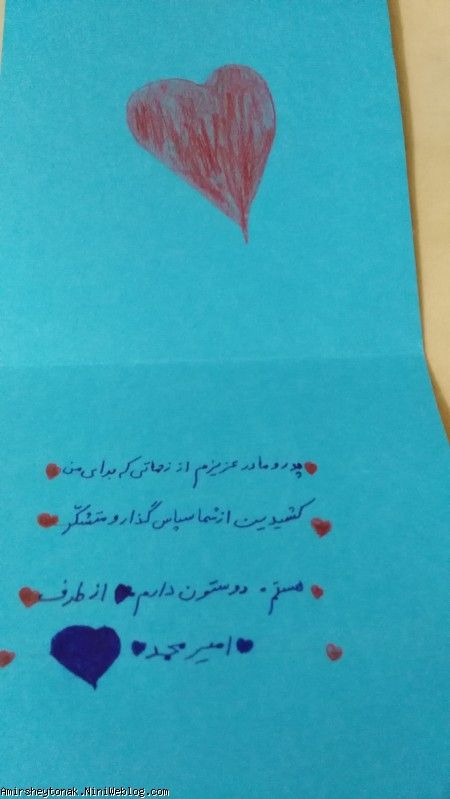 پدر و مادر عزیزم از زحماتی که برای من
کشیدین از شما سپاس گذار و متشکّر
هستم. دوستون دارم از طرف
امیر محمد
Amirsheytonak.NiniWeblog.com